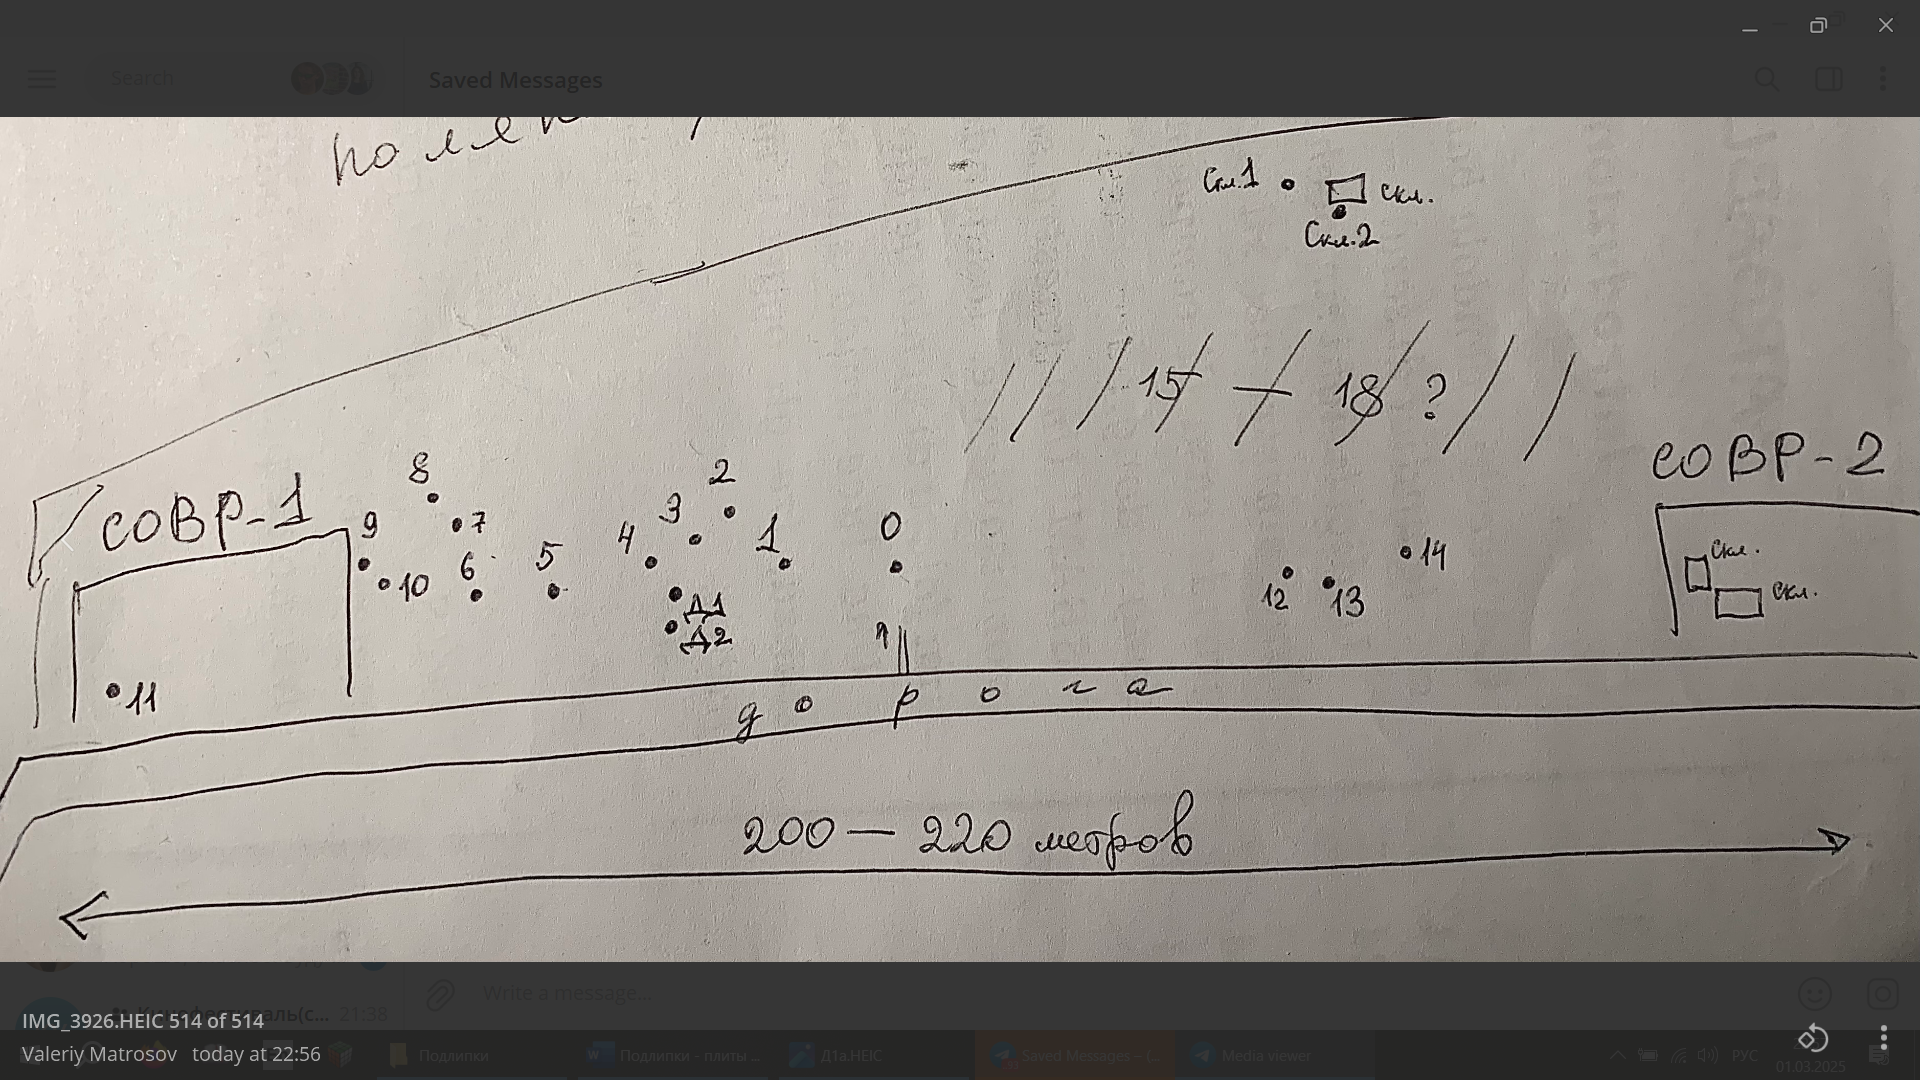 Search
Saved Messages
Скл.1
скл.
Скл.2
15 — 18 ?
СОВР-1
СОВР-2
8
9
7
10
6
5
4
3
2
1
0
Д1
Д2
11
12
13
14
Скл.
Скл.
1
дорога
200 — 220 метров
Write a message...
21:38
IMG_3926.HEIC 514 of 514
Valeriy Matrosov today at 22:56
Подлипки
Подлипки - плиты ...
Д1а.HEIC
Saved Messages – (...
Media viewer
РУС
01.03.2025